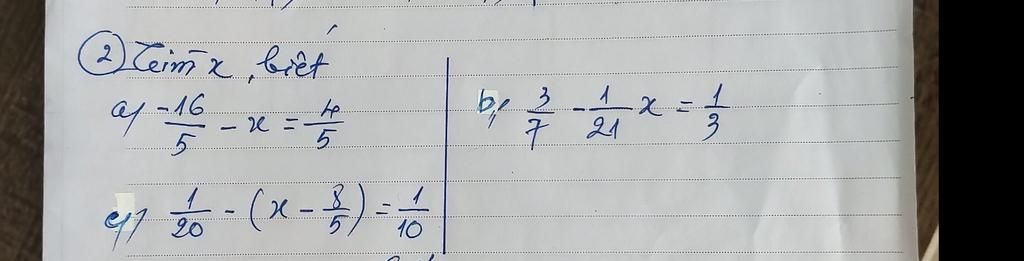 ② Tìm x, biết
a) -16/5 - x = 4/5
b) 3/7 - 1/21 x = 1/3
c) 1/20 - (x - 8/5) = 1/10